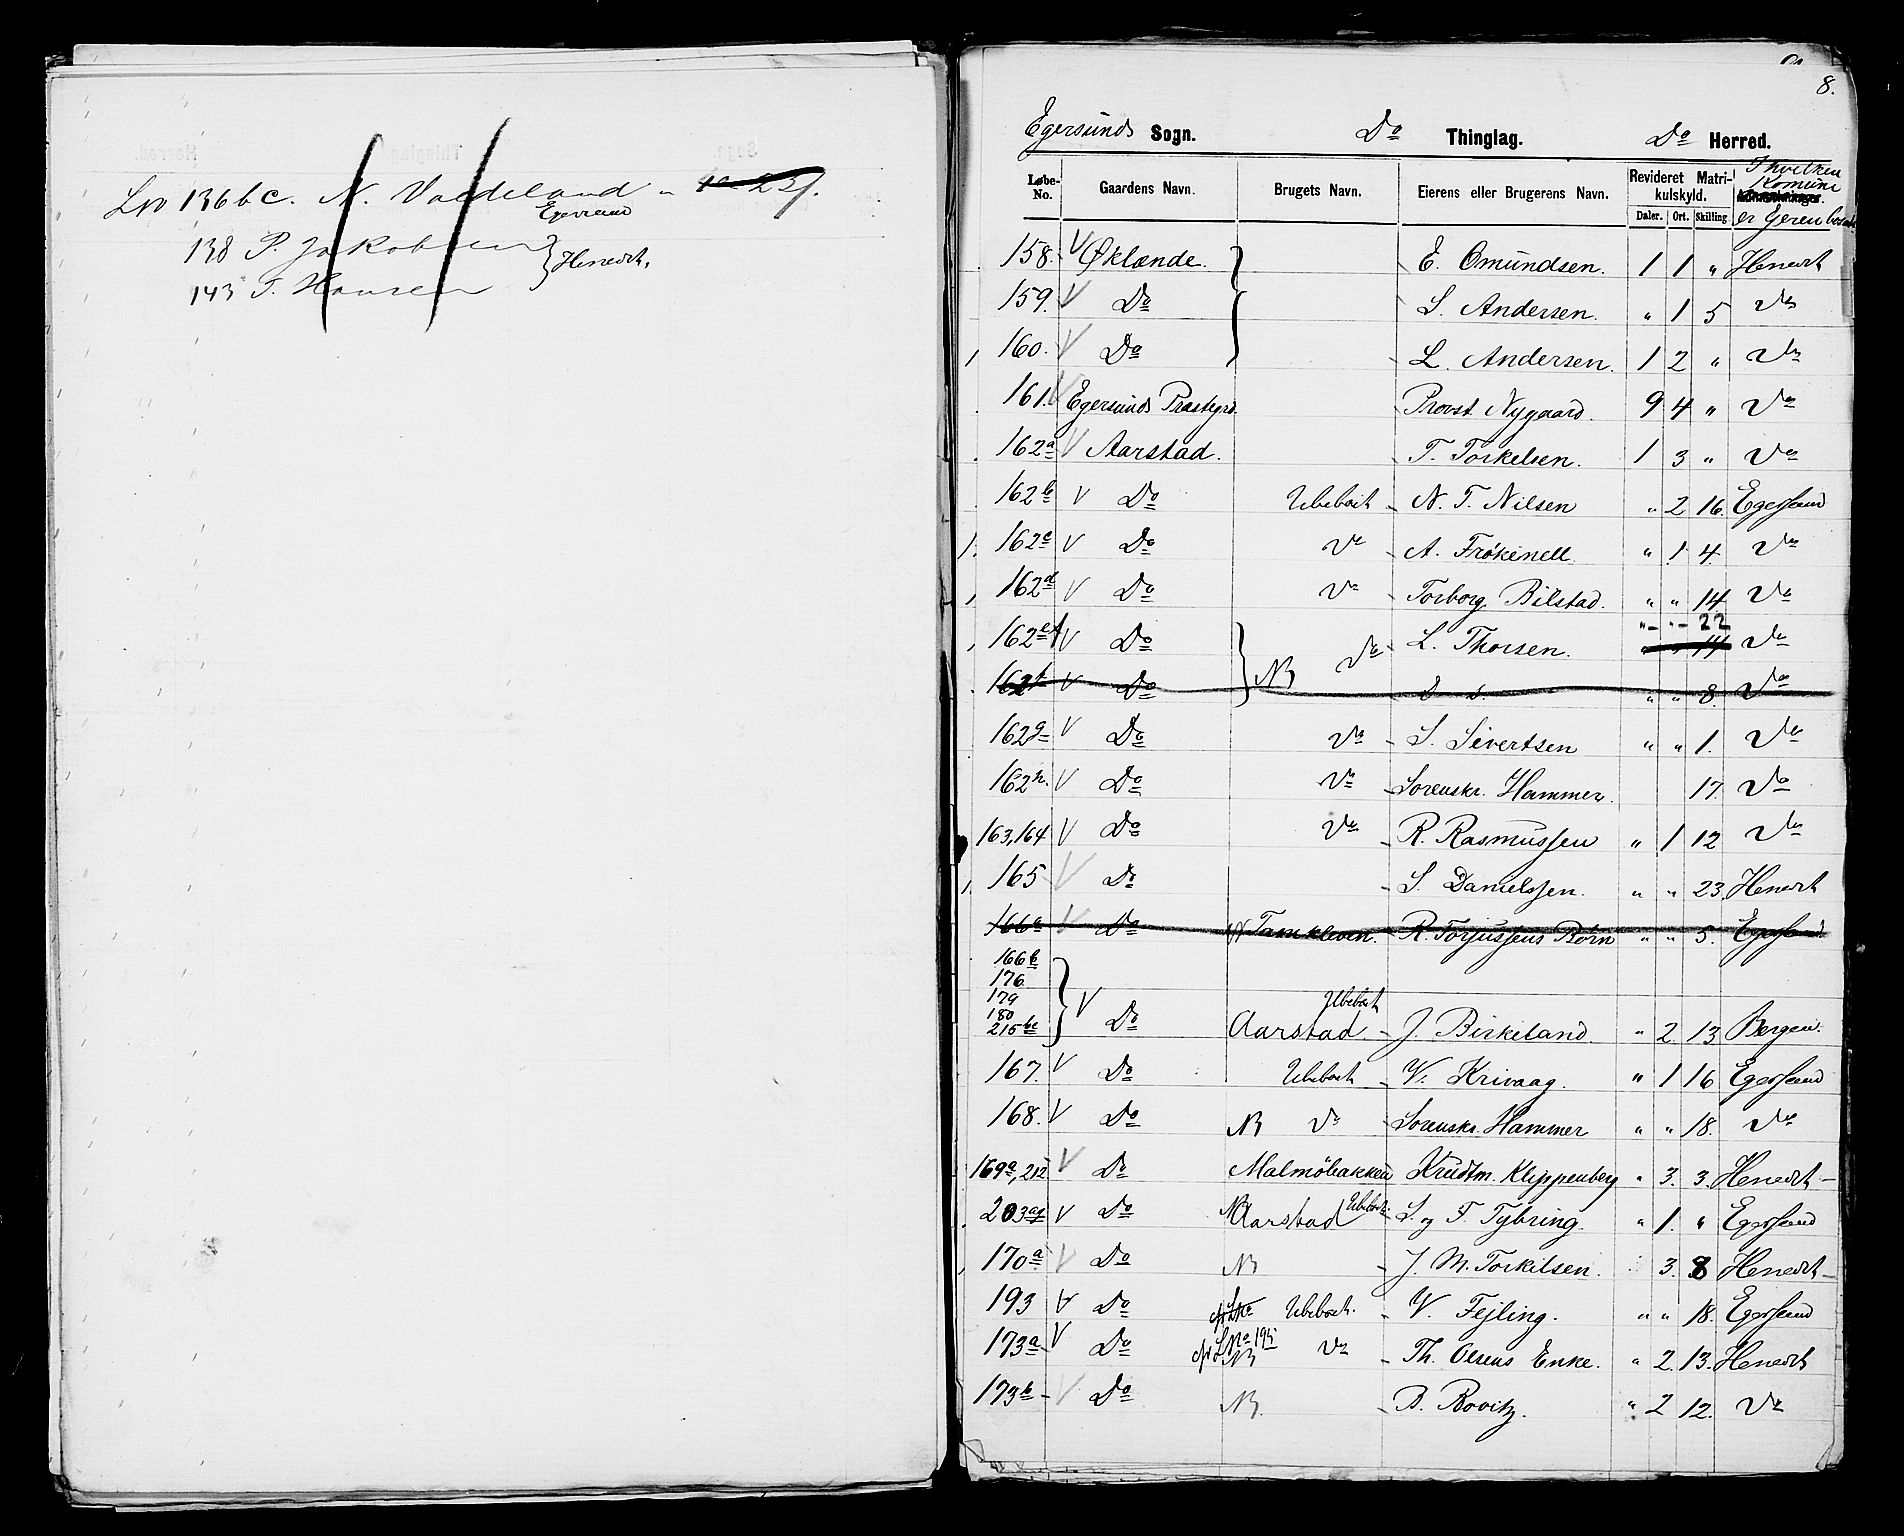 LNo 136 b c. N. Vadeland „ 1 o 23/.
Egersund
138 P. Jakobsen } Heredt,
143 T. Hansen
8.
Egersunds Sogn. Do Thinglag. Do Herred.
Løbe-No. Gaardens Navn. Brugets Navn. Eierens eller Brugerens Navn. Revideret Matrikulskyld. Daler. Ort. Skilling I hvilken Komune er Ejeren bosat.
158. V Øklænde. E. Omundsen. 1 1 „ Heredt
159. V Do S. Andersen. „ 1 5 Do
160. V Do L. Andersen. 1 2 „ Do
161. V Egersunds Præstegrd. Provst Nygaard. 9 4 „ Do
162a V Aarstad. T. Torkelsen. 1 3 „ Do
162b V Do Ubebost N. T. Nilsen „ 2 16. Egersund
162c V Do Do A. Frøkenell „ 1. 4. Do
162d V Do Do Torborg Bilstad. „ „ 14. Do
162e f V Do Do L. Thorsen. „ „ 22 Do
„ „ 14
162f V Do NB „ „ 8. Do
162g V Do Do S. Sivertsen „ „ 1. Do
162h. V Do Do Sorenskr. Hammer. 17. Do
163,164 V Do Do R. Rasmussen „ 1 12 Do
165 V Do S. Danielssen. „ „ 23. Heredt
166a V Do Tamkleven. R. Torjussens Børn „ „ 5. Egersund
166b
176
179
180
215bc V Do Aarstad. Ubebost J. Birkeland. „ 2. 13 Bergen.
167. V Do Ubebost V. Krivaag. „ 1 16 Egersund
168. V Do NB Do Sorenskr. Hammer „ „ 18. Do
169a, 212 V Do Malmöbakken Krudtm. Klippenberg „ 3. 3. Heredt
203ag V Do NB Aarstad Ubebost. S. og T. Tybring. „ 1. „ Egersund
170a V Do NB J. M. Torkilsen. 3. 8 Heredt
193 V Do Ubebost. V. Fejling. „ „ 18. Egersund
173a V Do LNo 195 NB Do Th. Olsens Enke. „ 2. 13. Heredt
173b V Do NB. B. Bovitz. „ 2 12. Do